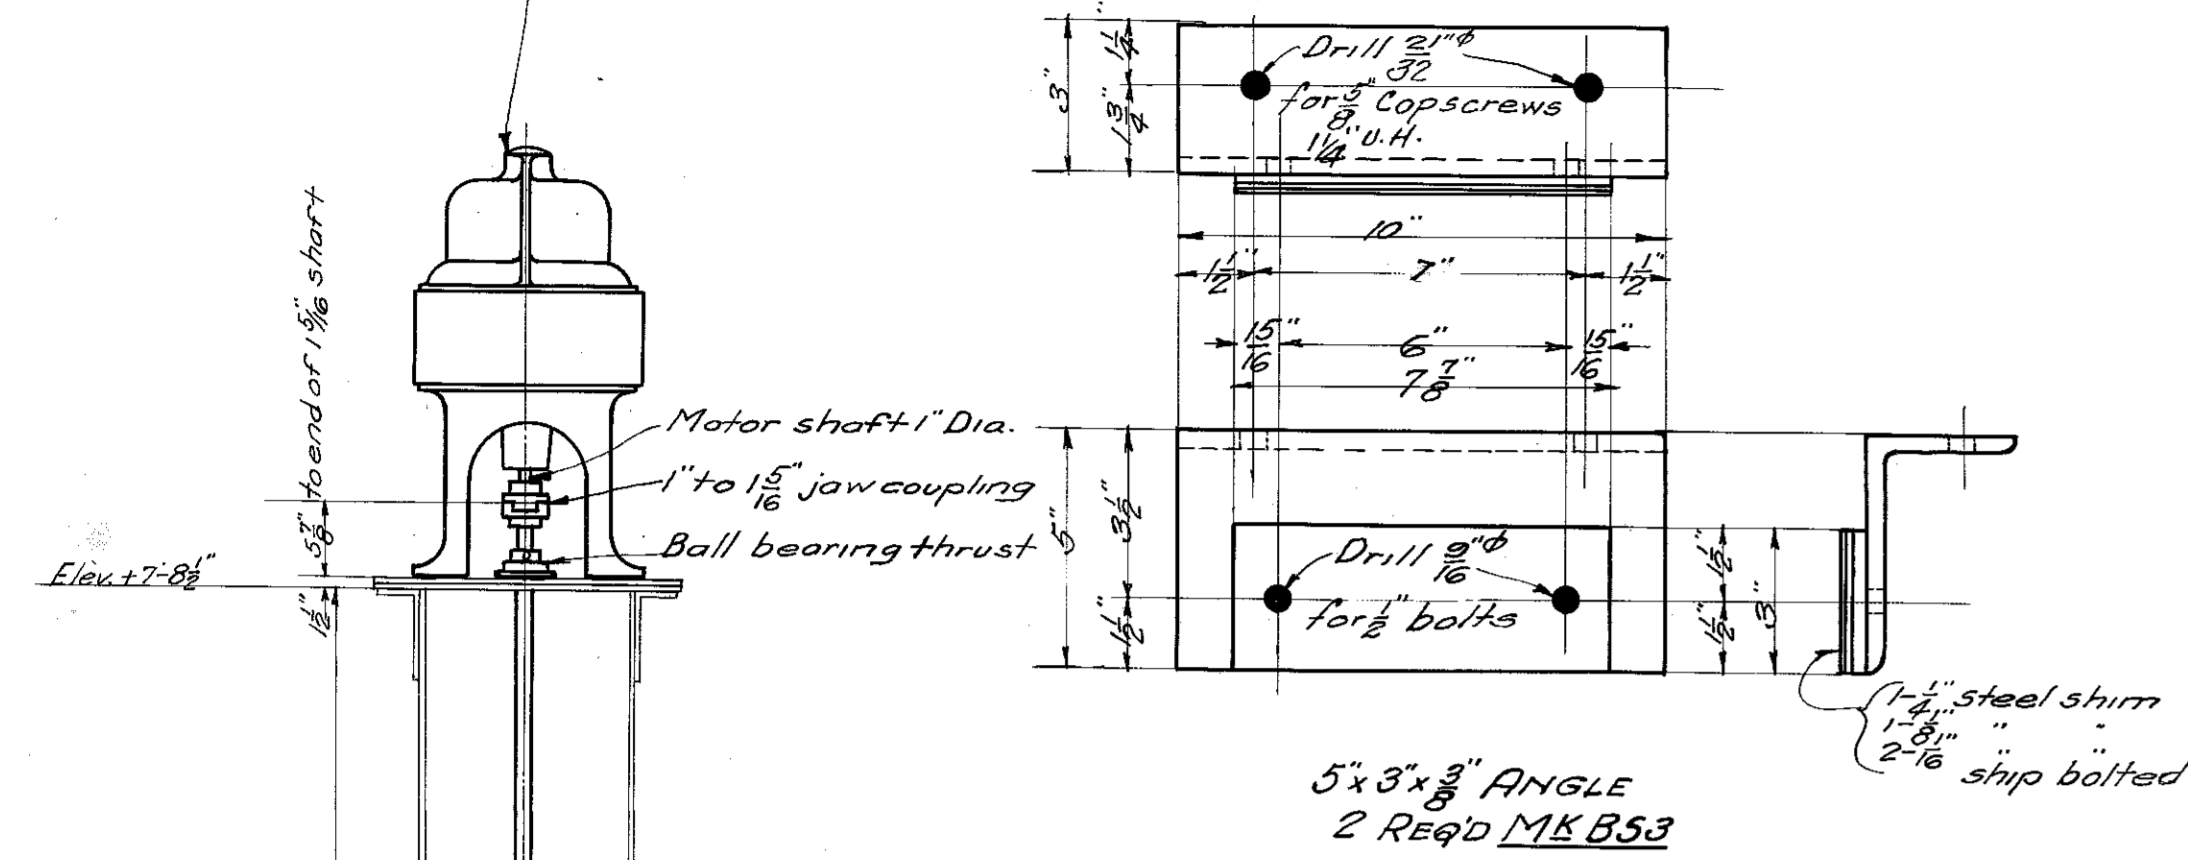 5 7/8" to end of 1 5/16" shaft
Elev. +7'-8 1/2"
1 1/2"
Motor shaft 1" Dia.
1" to 1 5/16" jaw coupling
Ball bearing thrust
3"
1 1/4"
1 3/4"
Drill 21/32" φ
for 5/8" Capscrews
1 1/4" U.H.
10"
1 1/2" 7" 1 1/2"
15/16" 6" 15/16"
7 7/8"
5"
3 1/2"
1 1/2"
Drill 9/16" φ
for 1/2" bolts
1 1/2"
1 1/2"
3"
1-1/4" steel shim
1-1/8" " "
2-1/16" " "
ship bolted
5" x 3" x 3/8" ANGLE
2 REQ'D MK BS3